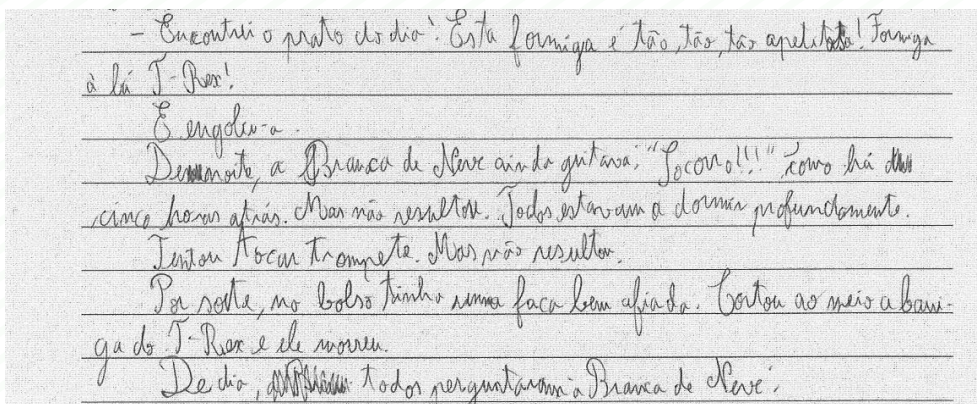 - Encontrei o prato do dia! Esta formiga é tão, tão, tão apetitosa! Formiga
à lá T-Rex!
E engoliu-a.
De noite, a Branca de Neve ainda gritava: "Socorro!!!" como há
cinco horas atrás. Mas não resultou. Todos estavam a dormir profundamente.
Tentou tocar trompete. Mas não resultou.
Por sorte, no bolso tinha uma faca bem afiada. Cortou ao meio a barri-
ga do T-Rex e ele morreu.
De dia, todos perguntaram à Branca de Neve: